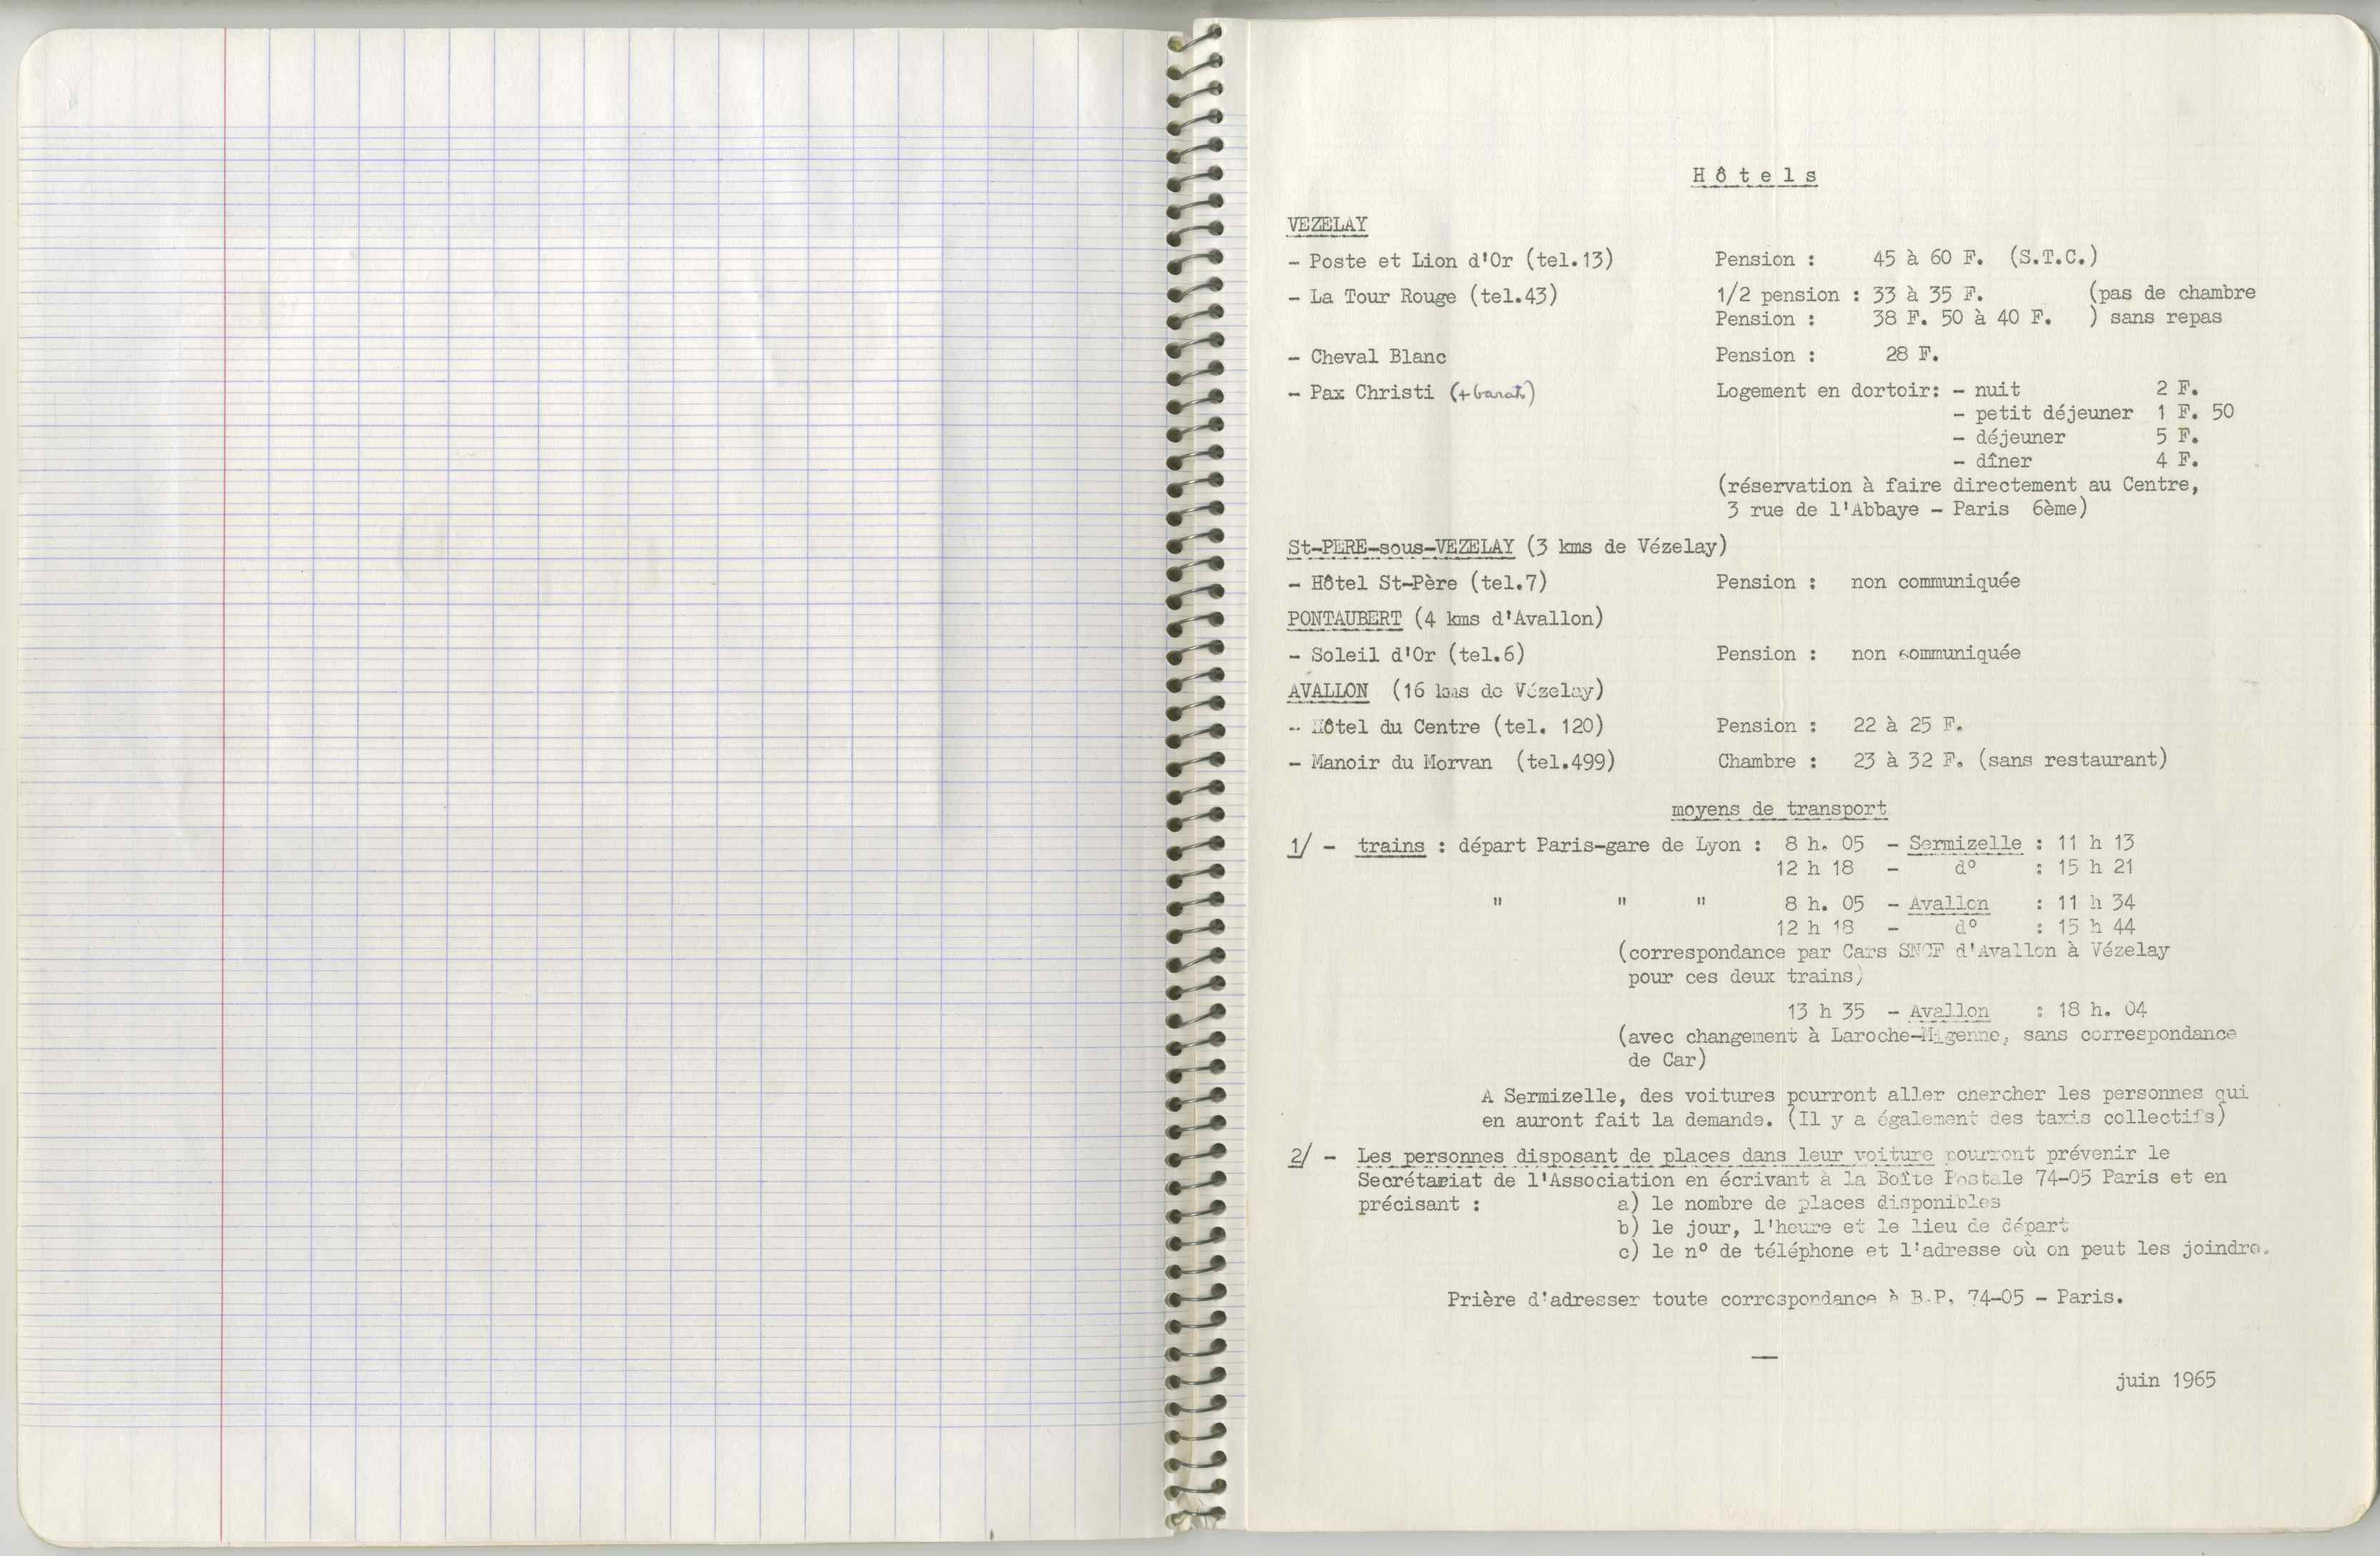 Hôtels
VEZELAY
- Poste et Lion d'Or (tel.13) Pension : 45 à 60 F. (S.T.C.)
- La Tour Rouge (tel.43) 1/2 pension : 33 à 35 F. (pas de chambre
Pension : 38 F. 50 à 40 F. ) sans repas
- Cheval Blanc Pension : 28 F.
- Pax Christi Logement en dortoir: - nuit 2 F.
- petit déjeuner 1 F. 50
- déjeuner 5 F.
- dîner 4 F.
(réservation à faire directement au Centre,
3 rue de l'Abbaye - Paris 6ème)
St-PERE-sous-VEZELAY (3 kms de Vézelay)
- Hôtel St-Père (tel.7) Pension : non communiquée
PONTAUBERT (4 kms d'Avallon)
- Soleil d'Or (tel.6) Pension : non communiquée
AVALLON (16 kms de Vézelay)
- Hôtel du Centre (tel. 120) Pension : 22 à 25 F.
- Manoir du Morvan (tel.499) Chambre : 23 à 32 F. (sans restaurant)
moyens de transport
1/ - trains : départ Paris-gare de Lyon : 8 h. 05 - Sermizelle : 11 h 13
12 h 18 - d° : 15 h 21
" " " 8 h. 05 - Avallon : 11 h 34
12 h 18 - d° : 15 h 44
(correspondance par Cars SNCF d'Avallon à Vézelay
pour ces deux trains)
13 h 35 - Avallon : 18 h. 04
(avec changement à Laroche-Migenne, sans correspondance
de Car)
A Sermizelle, des voitures pourront aller chercher les personnes qui
en auront fait la demande. (Il y a également des taxis collectifs)
2/ - Les personnes disposant de places dans leur voiture pourront prévenir le
Secrétariat de l'Association en écrivant à la Boîte Postale 74-05 Paris et en
précisant : a) le nombre de places disponibles
b) le jour, l'heure et le lieu de départ
c) le n° de téléphone et l'adresse où on peut les joindre.
Prière d'adresser toute correspondance à B.P. 74-05 - Paris.
juin 1965